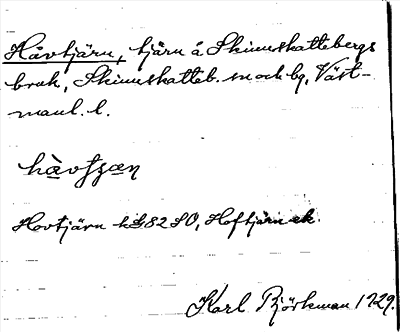 Håvtjärn, tjärn å Skinnskattebergs
bruk, Skinnskatteb. sn och bg, Väst-
manl. l.
hàvtʃæn
Hovtjärn hS82SO, Hoftjärn ek.
Karl Björkman 1929.